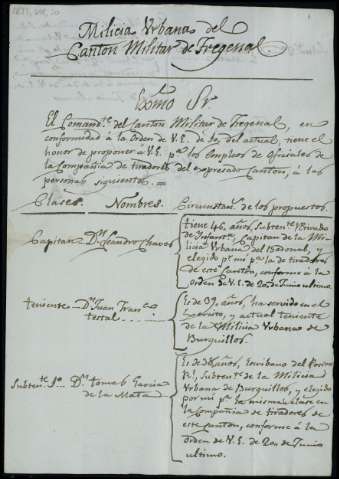 Milicia Urbana del
Canton Militar de Fregenal.
Exmo Sr
El Comand.te del Canton Militar de Fregenal, en
conformidad à la Orden de V.E. de 20, del actual, tiene el
honor de proponer à V.E. p.a los Empleos de Oficiales de
la Compañia de tiradores del expresado Canton, à las
personas siguientes. =
Clases. Nombres. Circunstan.s de los propuestos.
Capitan D.n Leandro Chaves
tiene 46, años, Subten.te
de Infant.a, Capitan de la Mi-
licia Urbana del, y
elegido p.r mi p.a la de tiradores
de este Canton, conforme à la
orden de V.E. de 20, de Junio ultimo.
teniente D.n Juan Fran.co
Es de 39, años, ha servido en el
Exercito, y actual teniente
de la Milicia Urbana de
Burguillos.
Subten.te 1.o D.n tomas Garcia
de la Mata
Es de años, Escribano del
Subten.te de la Milicia
Urbana de Burguillos, y elegido
por mi p.a la misma clase en
la Compañia de tiradores de
este canton, conforme à la
orden de V.E. de 20, de Junio
ultimo.